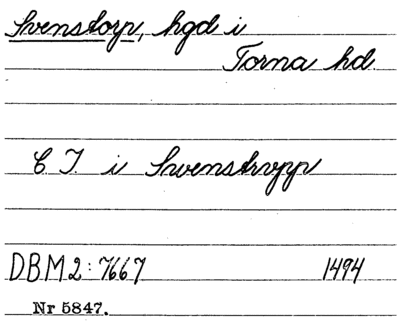 Svenstorp, hgd i
Torna hd.
C T. i Swenstrvpp
DBM2:7667 1494
Nr 5847.